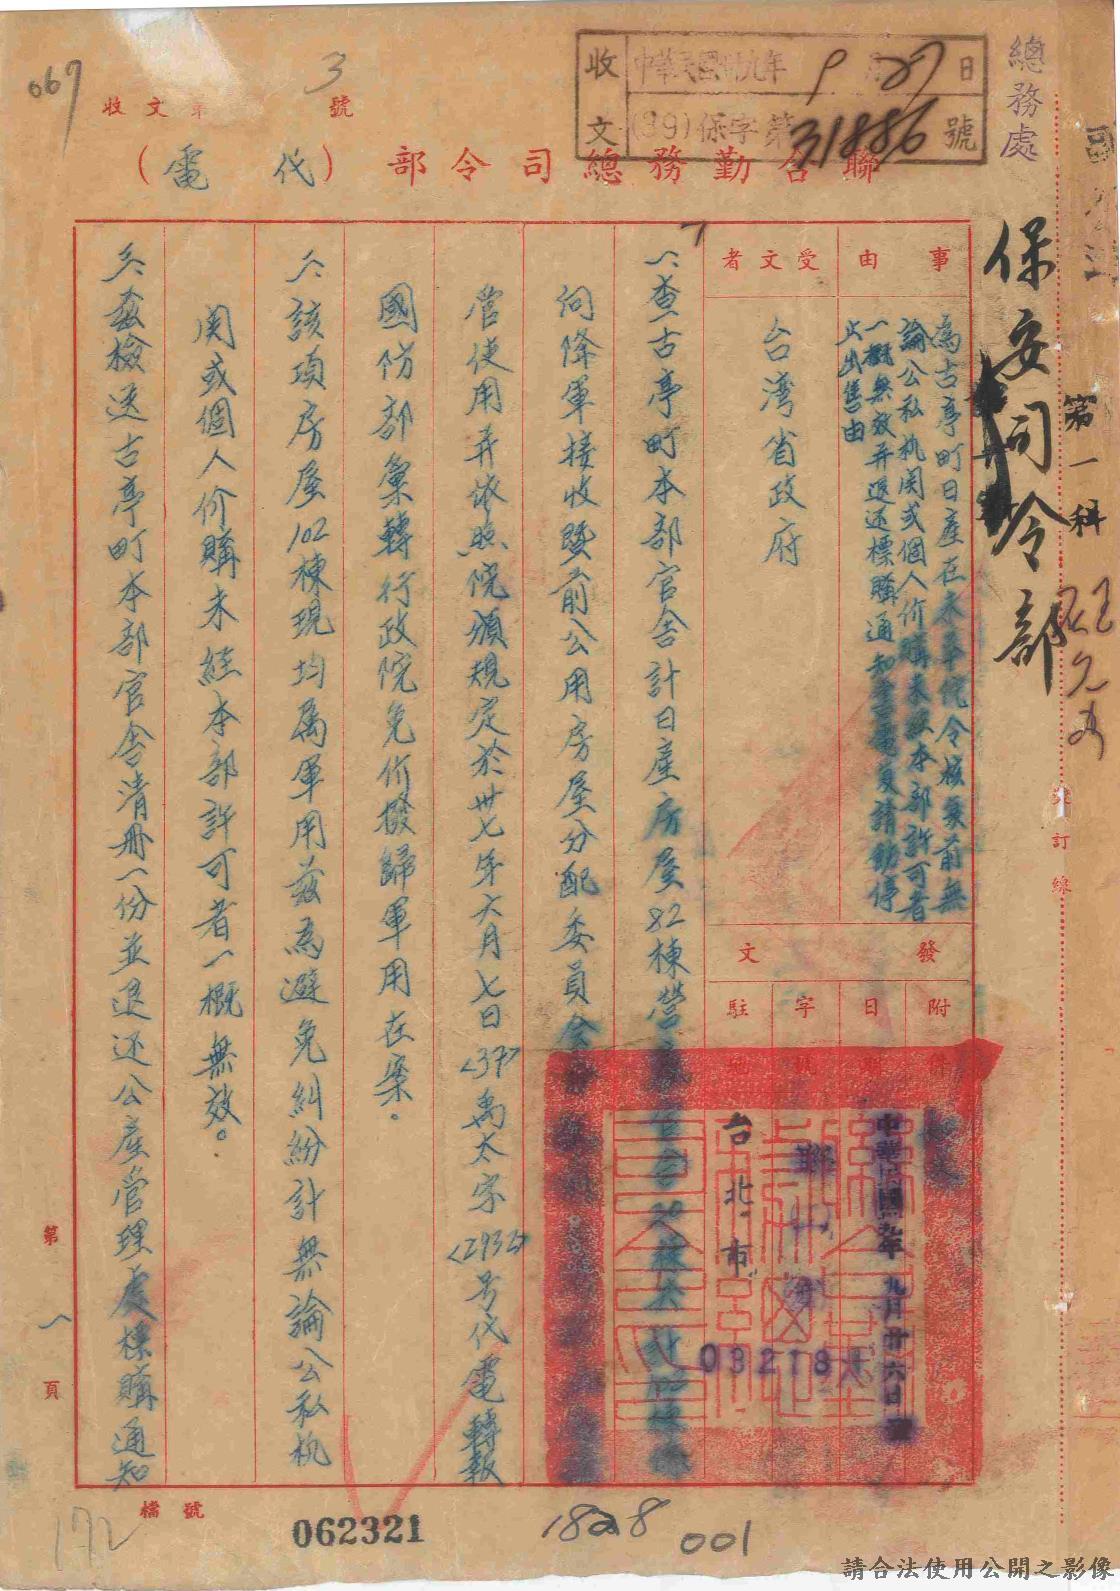 總務處
收文
中華民國卅九年9月27日
(39)保字第31886號
067
收文第 3 號
聯合勤務總司令部(代電)
保安司令部
第一科
裝訂線
事由
為古亭町日產在未奉院令核覆前無
論公私机関或個人价購未經本部許可者
一概無效并退还標購通知書電复請飭停
止出售由
受文者
台湾省政府
發文
附件
日期
字號
駐地
中華民國卅九年九月廿六日
03218
台北市
一、查古亭町本部官舍計日產房屋82棟營產官舍20棟共102棟係
向降軍接收暨前公用房屋分配委員會
管使用并依照院頒規定於卅七年六月七日<37>禹太字<2932>号代電轉報
國防部彙轉行政院免价撥歸軍用在案。
二、該項房屋102棟現均属軍用茲為避免糾紛計無論公私机
関或個人价購未經本部許可者一概無效。
三、茲檢送古亭町本部官舍清册一份並退还公產管理處標購通知
第一頁
檔號
172
062321
1828
001
請合法使用公開之影像